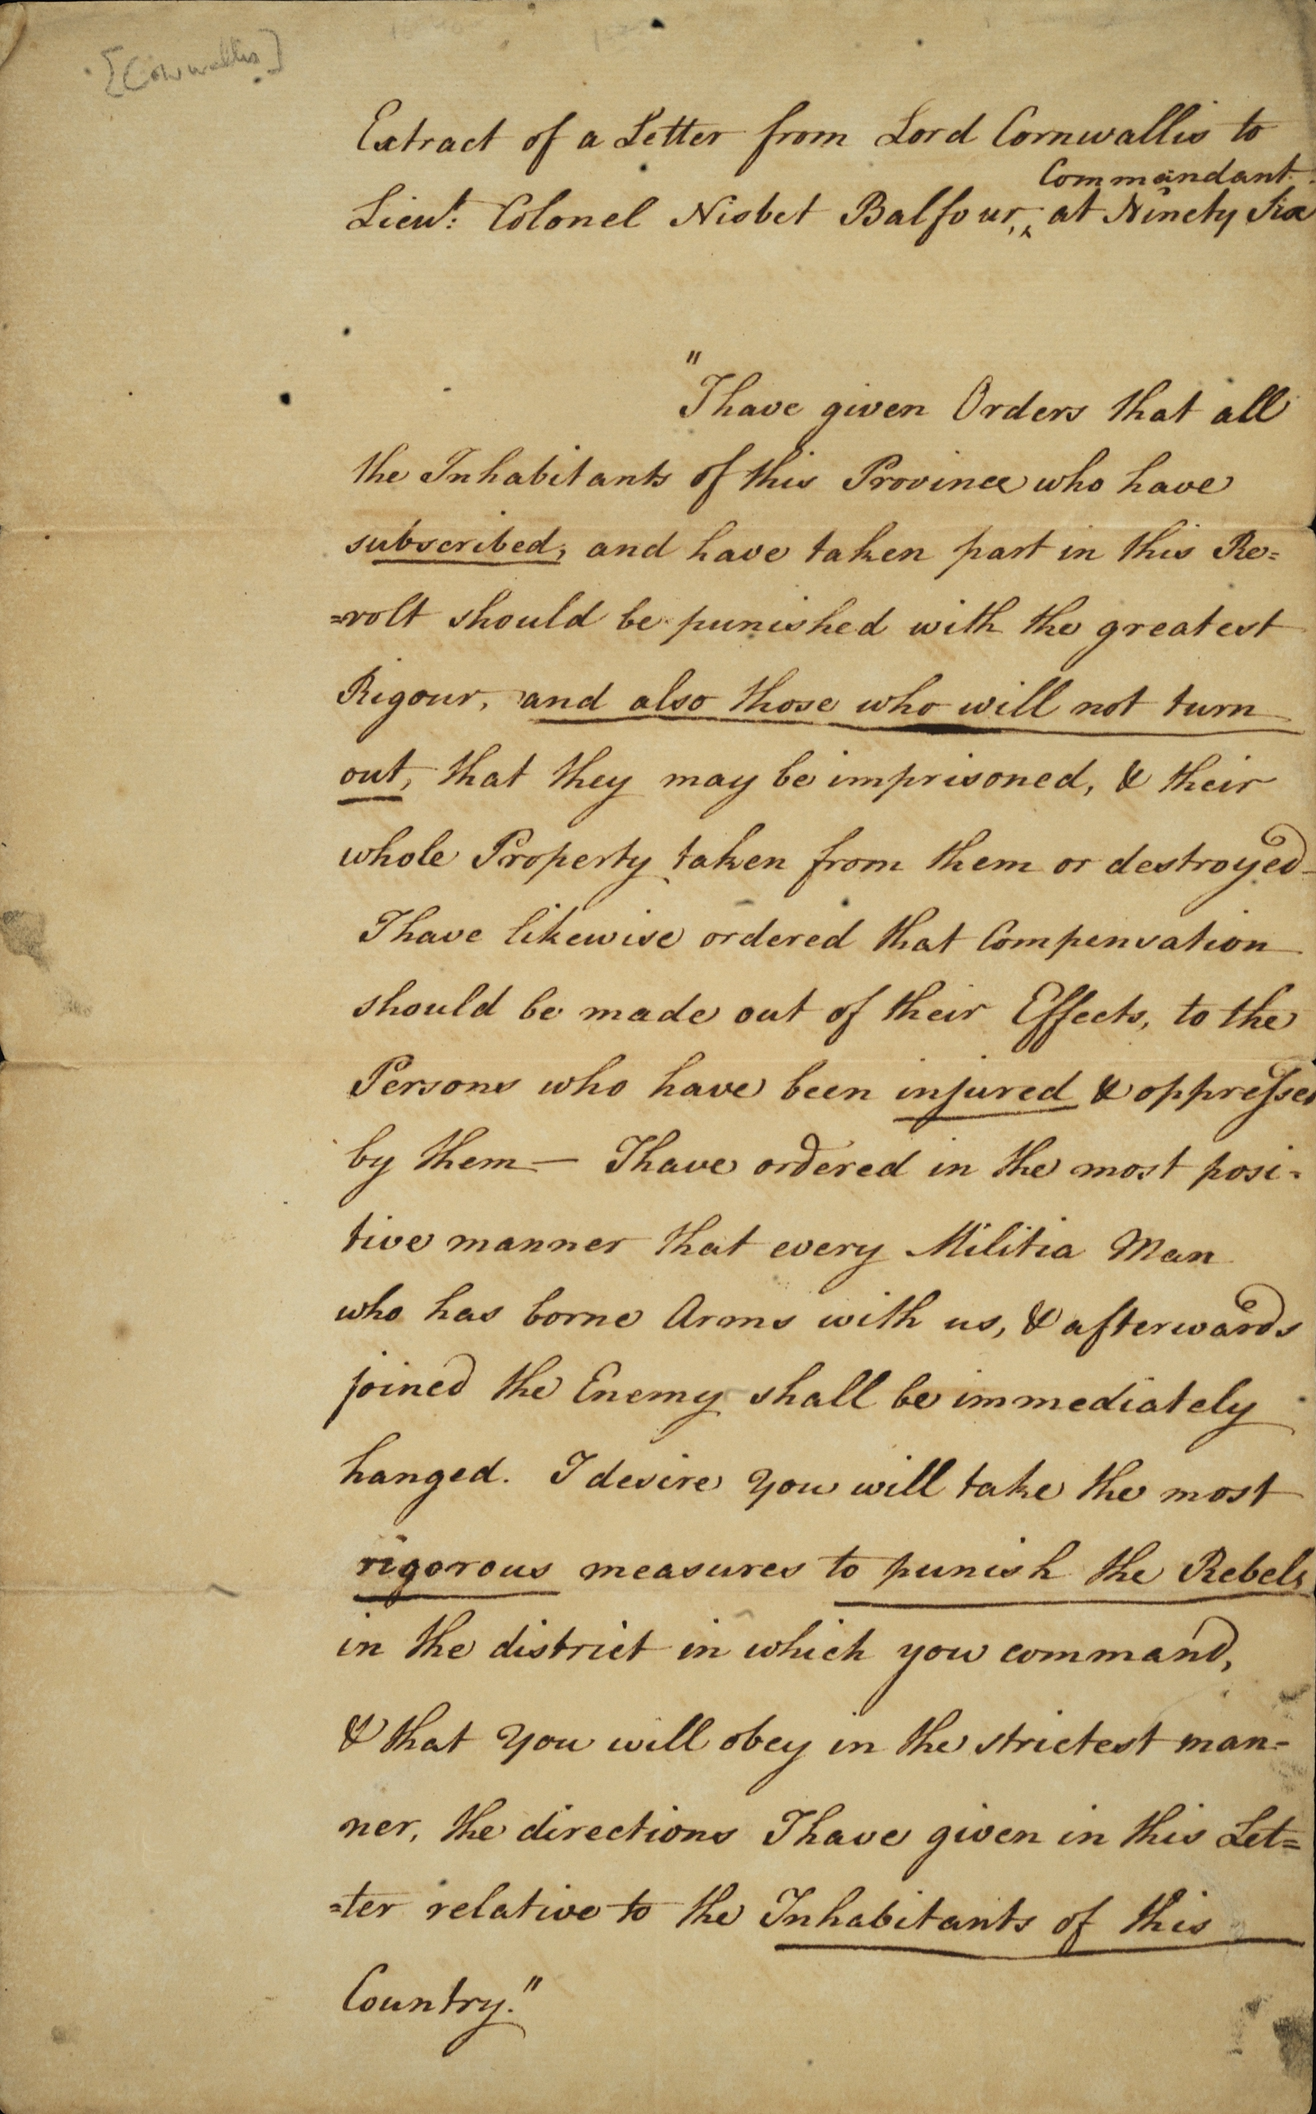 [Cornwallis]
Extract of a Letter from Lord Cornwallis to
Commandant
Lieut: Colonel Nisbet Balfour, ‸ at Ninety Six
"I have given Orders that all
the Inhabitants of this Province who have
subscribed, and have taken part in this Re=
=volt should be punished with the greatest
Rigour, and also those who will not turn
out, that they may be imprisoned, & their
whole Property taken from them or destroyed
I have likewise ordered that Compensation
should be made out of their Effects, to the
Persons who have been injured & oppressed
by them — I have ordered in the most posi=
tive manner that every Militia Man
who has borne Arms with us, & afterwards
joined the Enemy shall be immediately
hanged. I desire you will take the most
rigorous measures to punish the Rebels
in the district in which you command,
& that you will obey in the strictest man=
ner, the directions I have given in this Let=
=ter relative to the Inhabitants of this
Country."